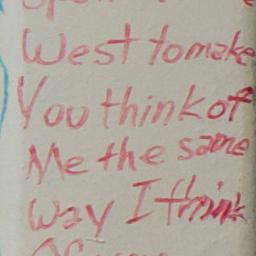 West to make
You think of
Me the same
Way I think